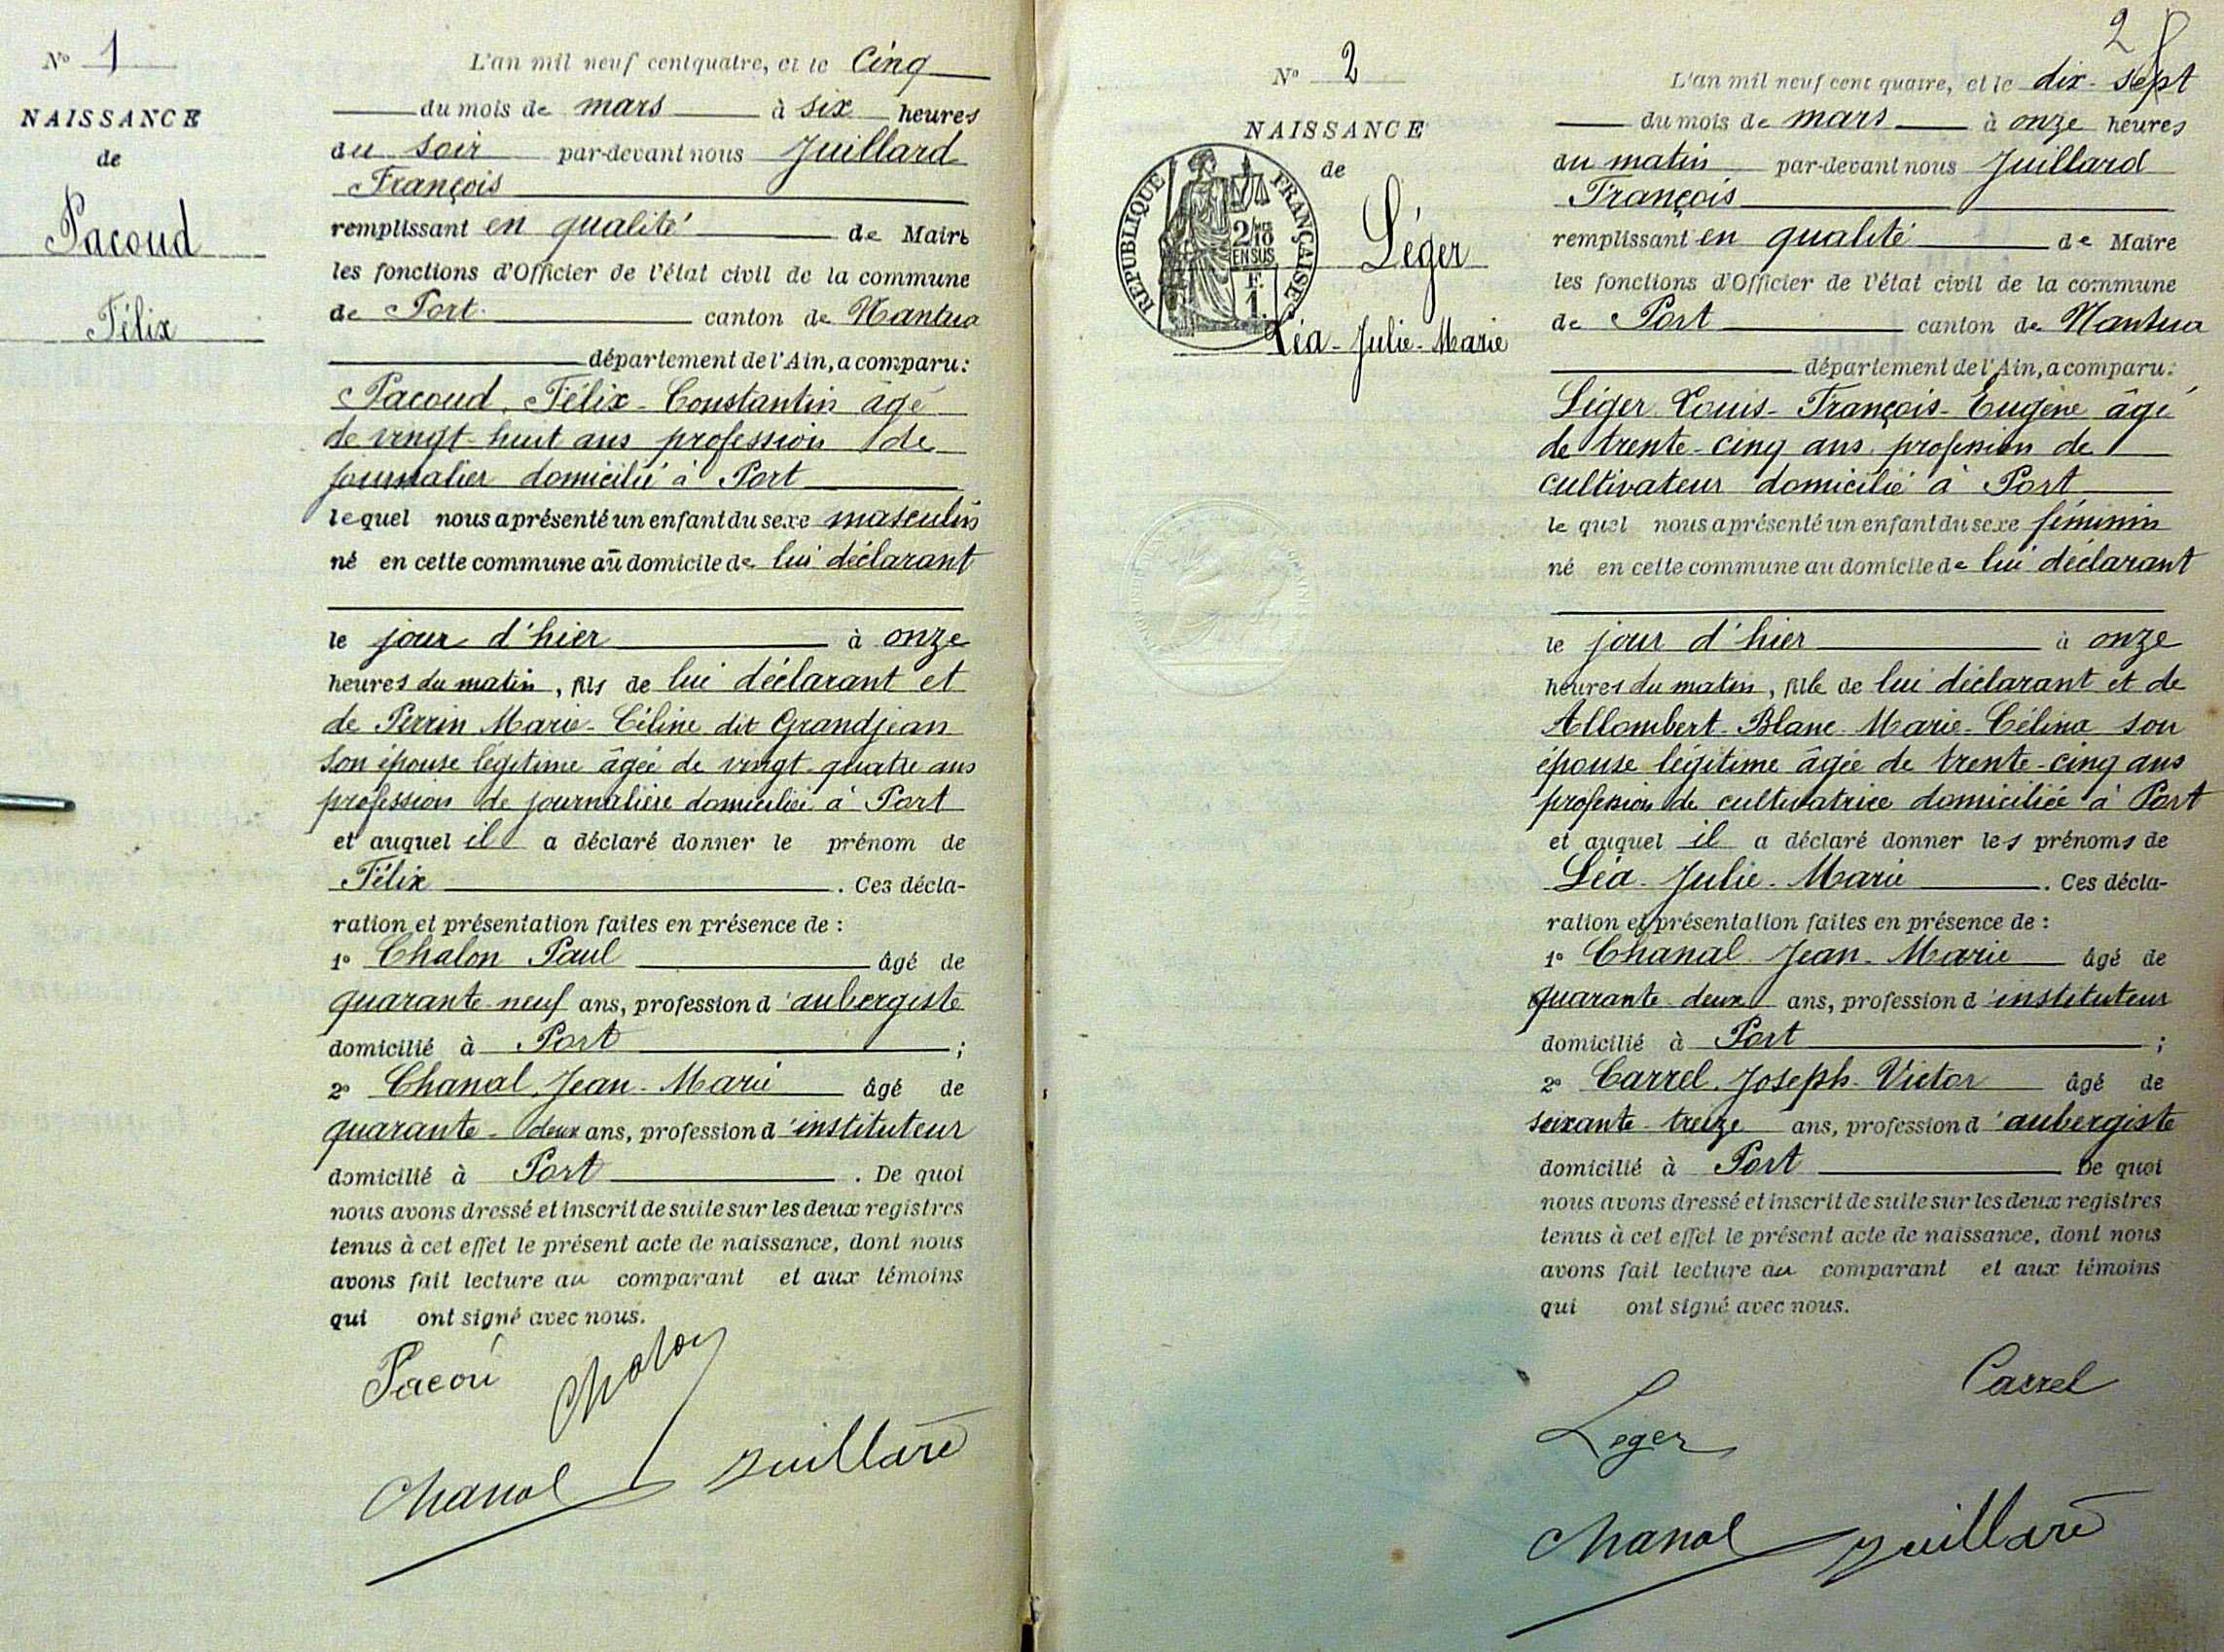 N° 1
NAISSANCE
de
Pacoud
Félix
L'an mil neuf cent quatre, et le Cinq
du mois de mars à six heures
du soir par-devant nous Juillard
François
remplissant en qualité de Maire
les fonctions d'Officier de l'état civil de la commune
de Port canton de Nantua
département de l'Ain, a comparu:
Pacoud, Félix-Constantin âgé
de vingt-huit ans profession de
journalier domicilié à Port
lequel nous a présenté un enfant du sexe masculin
né en cette commune au domicile de lui déclarant
le jour d'hier à onze
heures du matin, fils de lui déclarant et
de Perrin Marie-Céline dit Grandjean
son épouse légitime âgée de vingt-quatre ans
profession de journalière domiciliée à Port
et auquel il a déclaré donner le prénom de
Félix. Ces décla-
ration et présentation faites en présence de :
1° Chalon Paul âgé de
quarante-neuf ans, profession d'aubergiste
domicilié à Port ;
2° Chanal Jean-Marie âgé de
quarante-deux ans, profession d'instituteur
domicilié à Port. De quoi
nous avons dressé et inscrit de suite sur les deux registres
tenus à cet effet le présent acte de naissance, dont nous
avons fait lecture au comparant et aux témoins
qui ont signé avec nous.
Pacou Chalon
Chanal Juillard
2
N° 2
NAISSANCE
de
RÉPUBLIQUE FRANÇAISE
2/10
EN SUS
F.
1.
Léger
Léa-Julie-Marie
L'an mil neuf cent quatre, et le dix-sept
du mois de mars à onze heures
du matin par-devant nous Juillard
François
remplissant en qualité de Maire
les fonctions d'Officier de l'état civil de la commune
de Port canton de Nantua
département de l'Ain, a comparu:
Léger Louis-François-Eugène âgé
de trente-cinq ans profession de
cultivateur domicilié à Port
lequel nous a présenté un enfant du sexe féminin
né en cette commune au domicile de lui déclarant
le jour d'hier à onze
heures du matin, fille de lui déclarant et de
Allombert-Blanc Marie-Célina son
épouse légitime âgée de trente-cinq ans
profession de cultivatrice domiciliée à Port
et auquel il a déclaré donner les prénoms de
Léa-Julie-Marie. Ces décla-
ration et présentation faites en présence de :
1° Chanal Jean-Marie âgé de
quarante-deux ans, profession d'instituteur
domicilié à Port ;
2° Carrel Joseph-Victor âgé de
soixante-treize ans, profession d'aubergiste
domicilié à Port De quoi
nous avons dressé et inscrit de suite sur les deux registres
tenus à cet effet le présent acte de naissance, dont nous
avons fait lecture au comparant et aux témoins
qui ont signé avec nous.
Carrel
Leger
Chanal Juillard